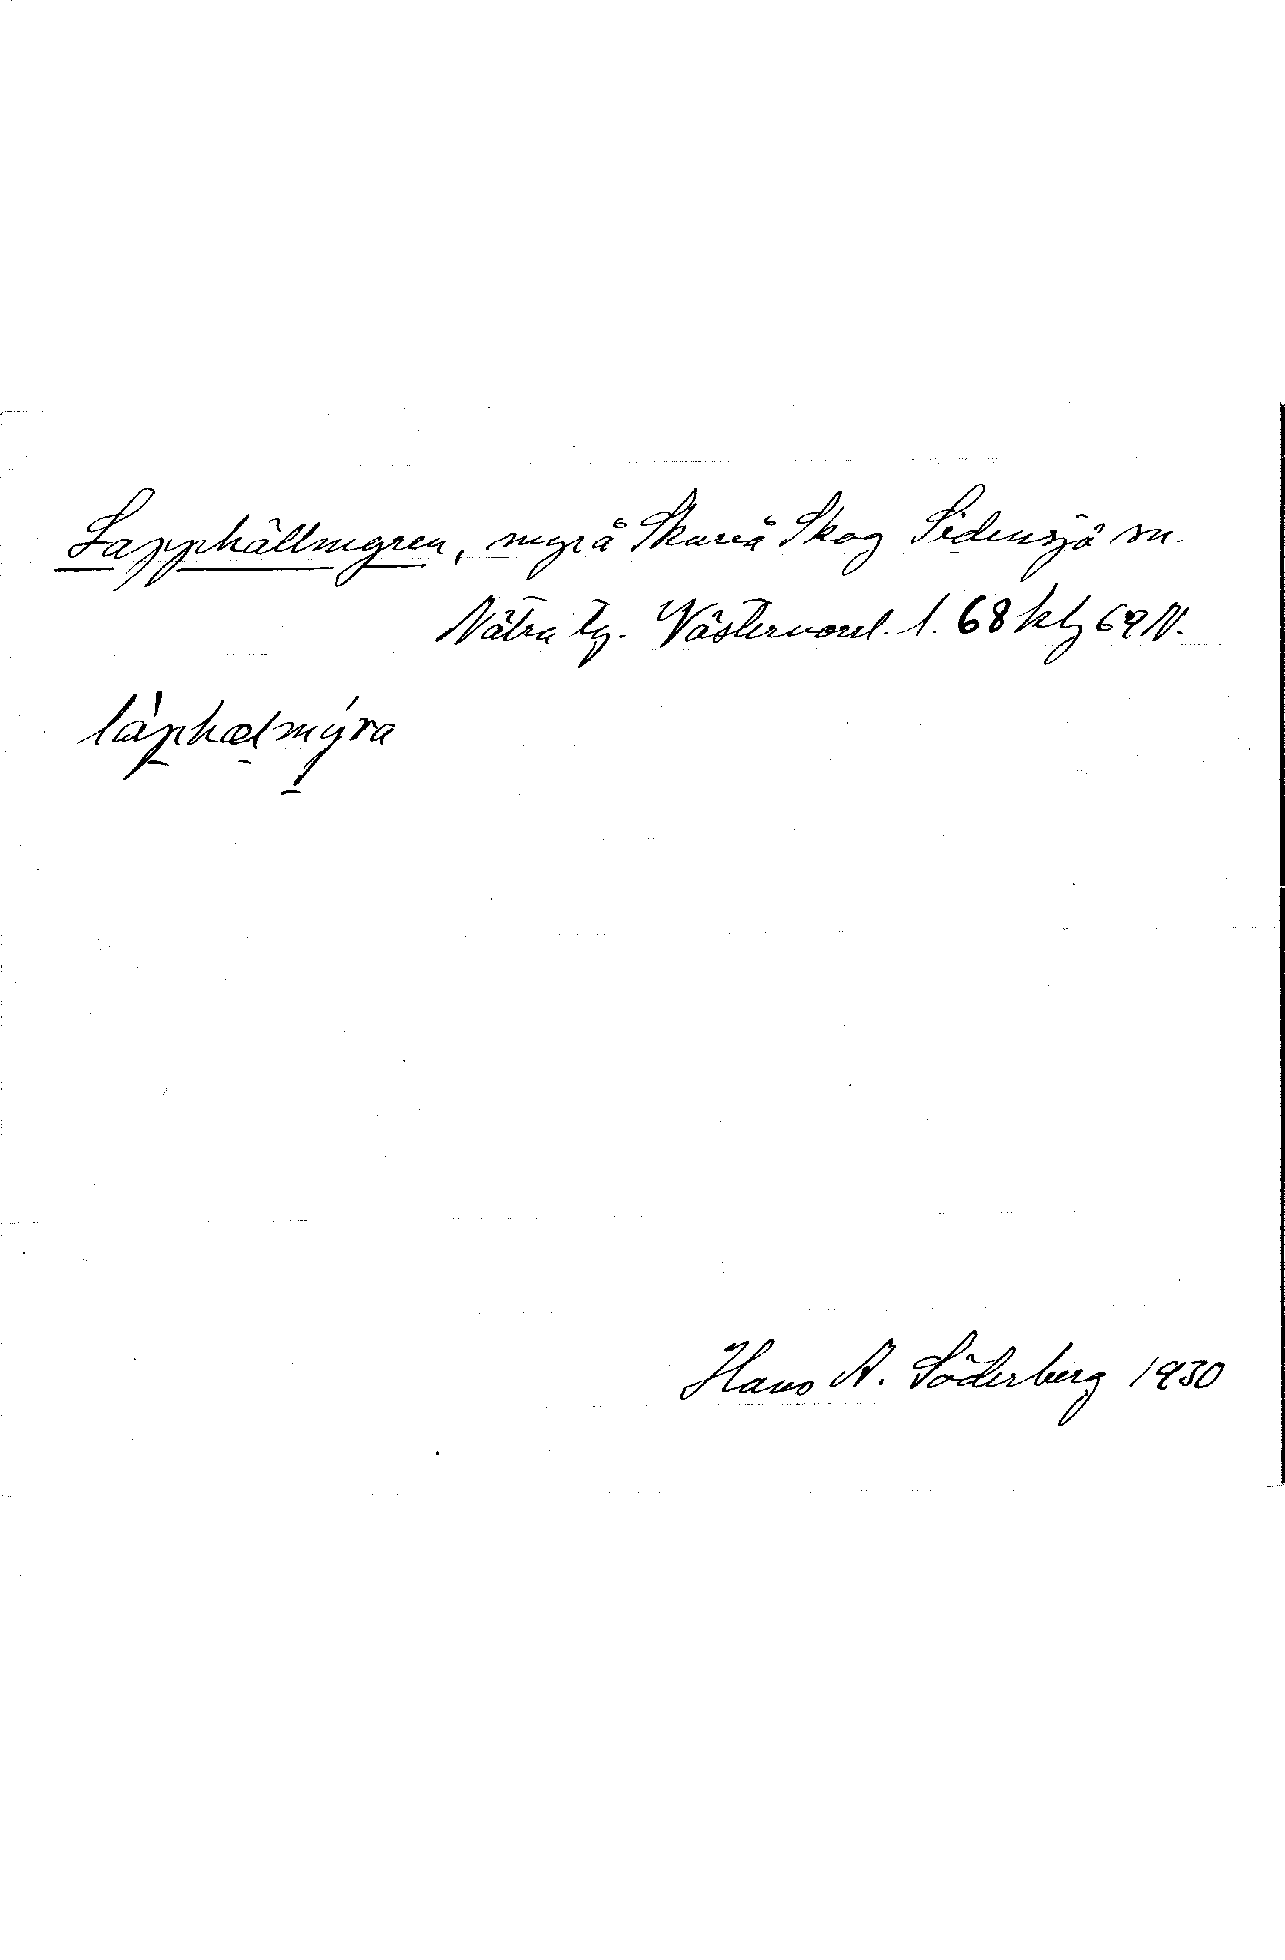 Lapphällmyren, myr å Skureå Skog Sidensjö sn
Nätra tg. Västernorrl. l. 68 kbj 69 N.
låphælmyra
Hans A. Söderberg 1930